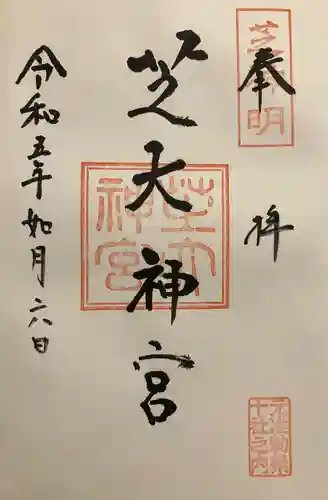 奉拝
芝神明
芝大神宮
芝大神宮
令和五年如月六日